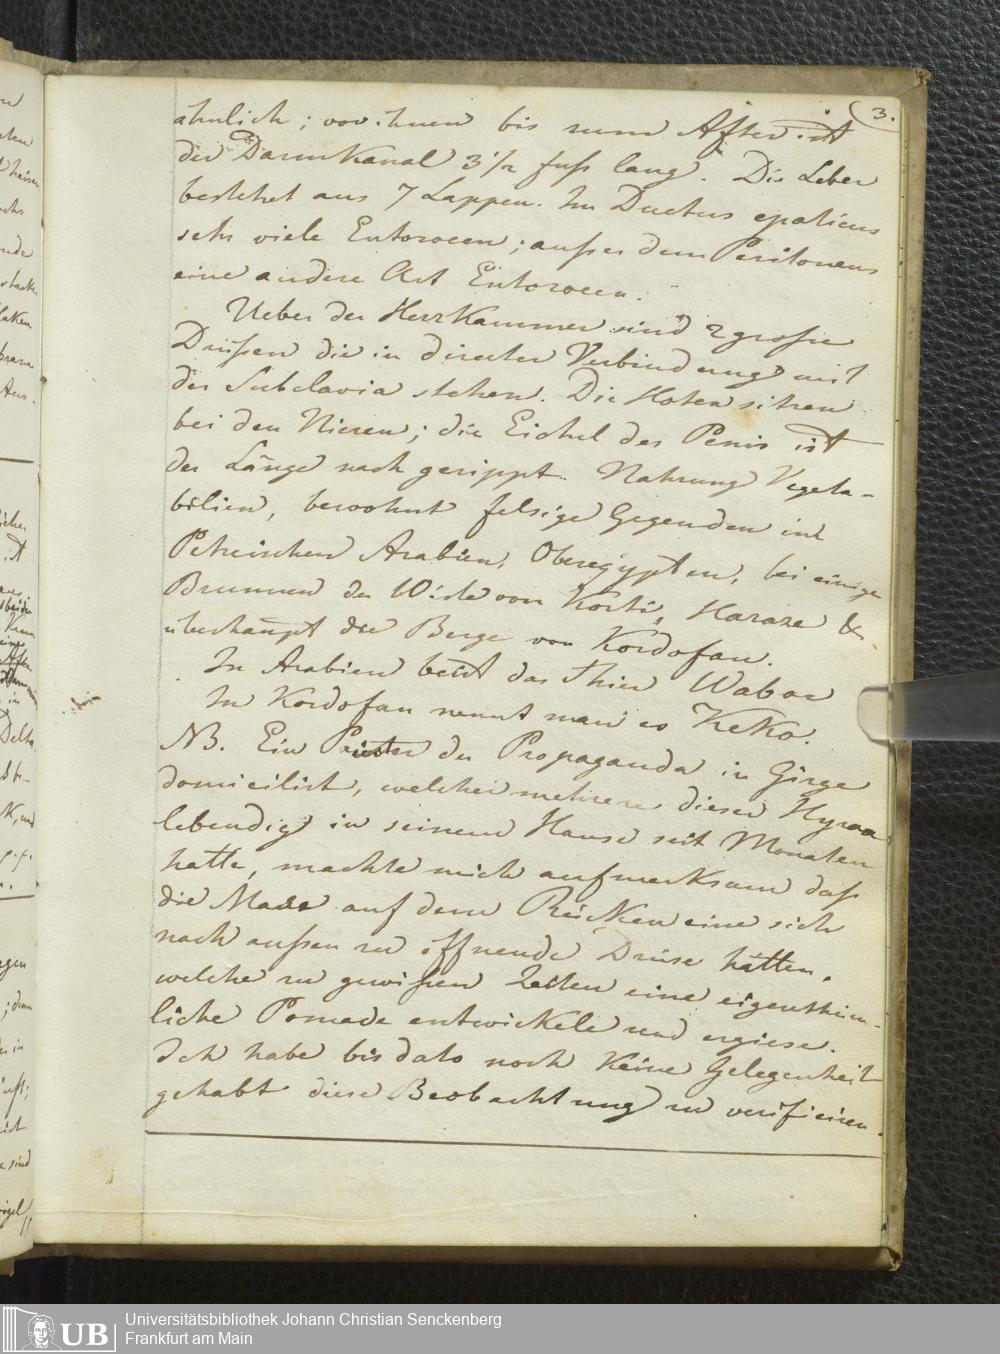 3.
ähnlich; von ihnen bis zum After ist
der Darmkanal 3 1/2 fuß lang. Die Leber
bestehet aus 7 Lappen. Im Ductus epaticus
sehr viele Entozoeen; außer dem Peritoneus
eine andere Art Entozoeen.
Ueber der Herzkammer sind 2 große
Drüßen die in directer Verbindung mit
der Subclavia stehen. Die Hoten sitzen
bei den Nieren; die Eichel des Penis ist
der Länge nach gerippt. Nahrung Vegeta-
bilien, bewohnt felsige Gegenden im
Petreischen Arabien, Oberegÿpten, bei einige
Brunnen der Wüste von Korti, Haraze &
überhaupt die Berge von Kordofan.
In Arabien heist das Thier Wabar
In Kordofan nennt man es KeKo.
NB. Ein Priester der Propaganda in Girge
domicilirt, welcher mehrere dieser Hyrax
lebendig in seinem Hause seit Monaten
hatte, machte mich aufmerksam daß
die auf dem Rücken eine sich
nach außen zu öffnende Drüse hätten,
welche zu gewißen Zeiten eine eigenthüm-
liche Pomade entwickele und ergiese.
Ich habe bis dato noch keine Gelegenheit
gehabt diese Beobachtung zu verificiren.
UB
Universitätsbibliothek Johann Christian Senckenberg
Frankfurt am Main